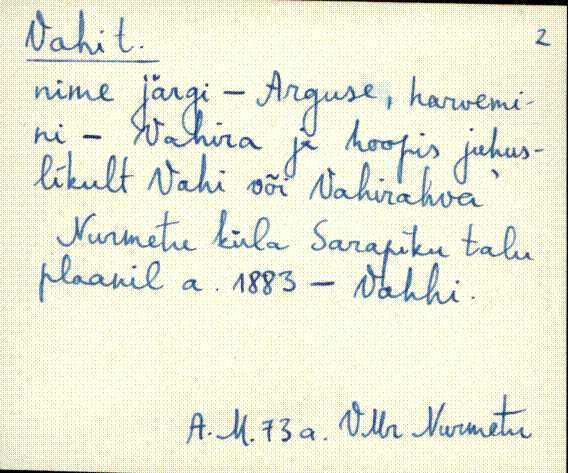 Vahi t. 2
nime järgi - Arguse, harvemi-
ni - Vahira ja hoopis juhus-
likult Vahi või Vahirahva
Nurmetu küla Sarapiku talu
plaanil a. 1883 - Vahhi.
A. M. 73 a. VMr Nurmetu